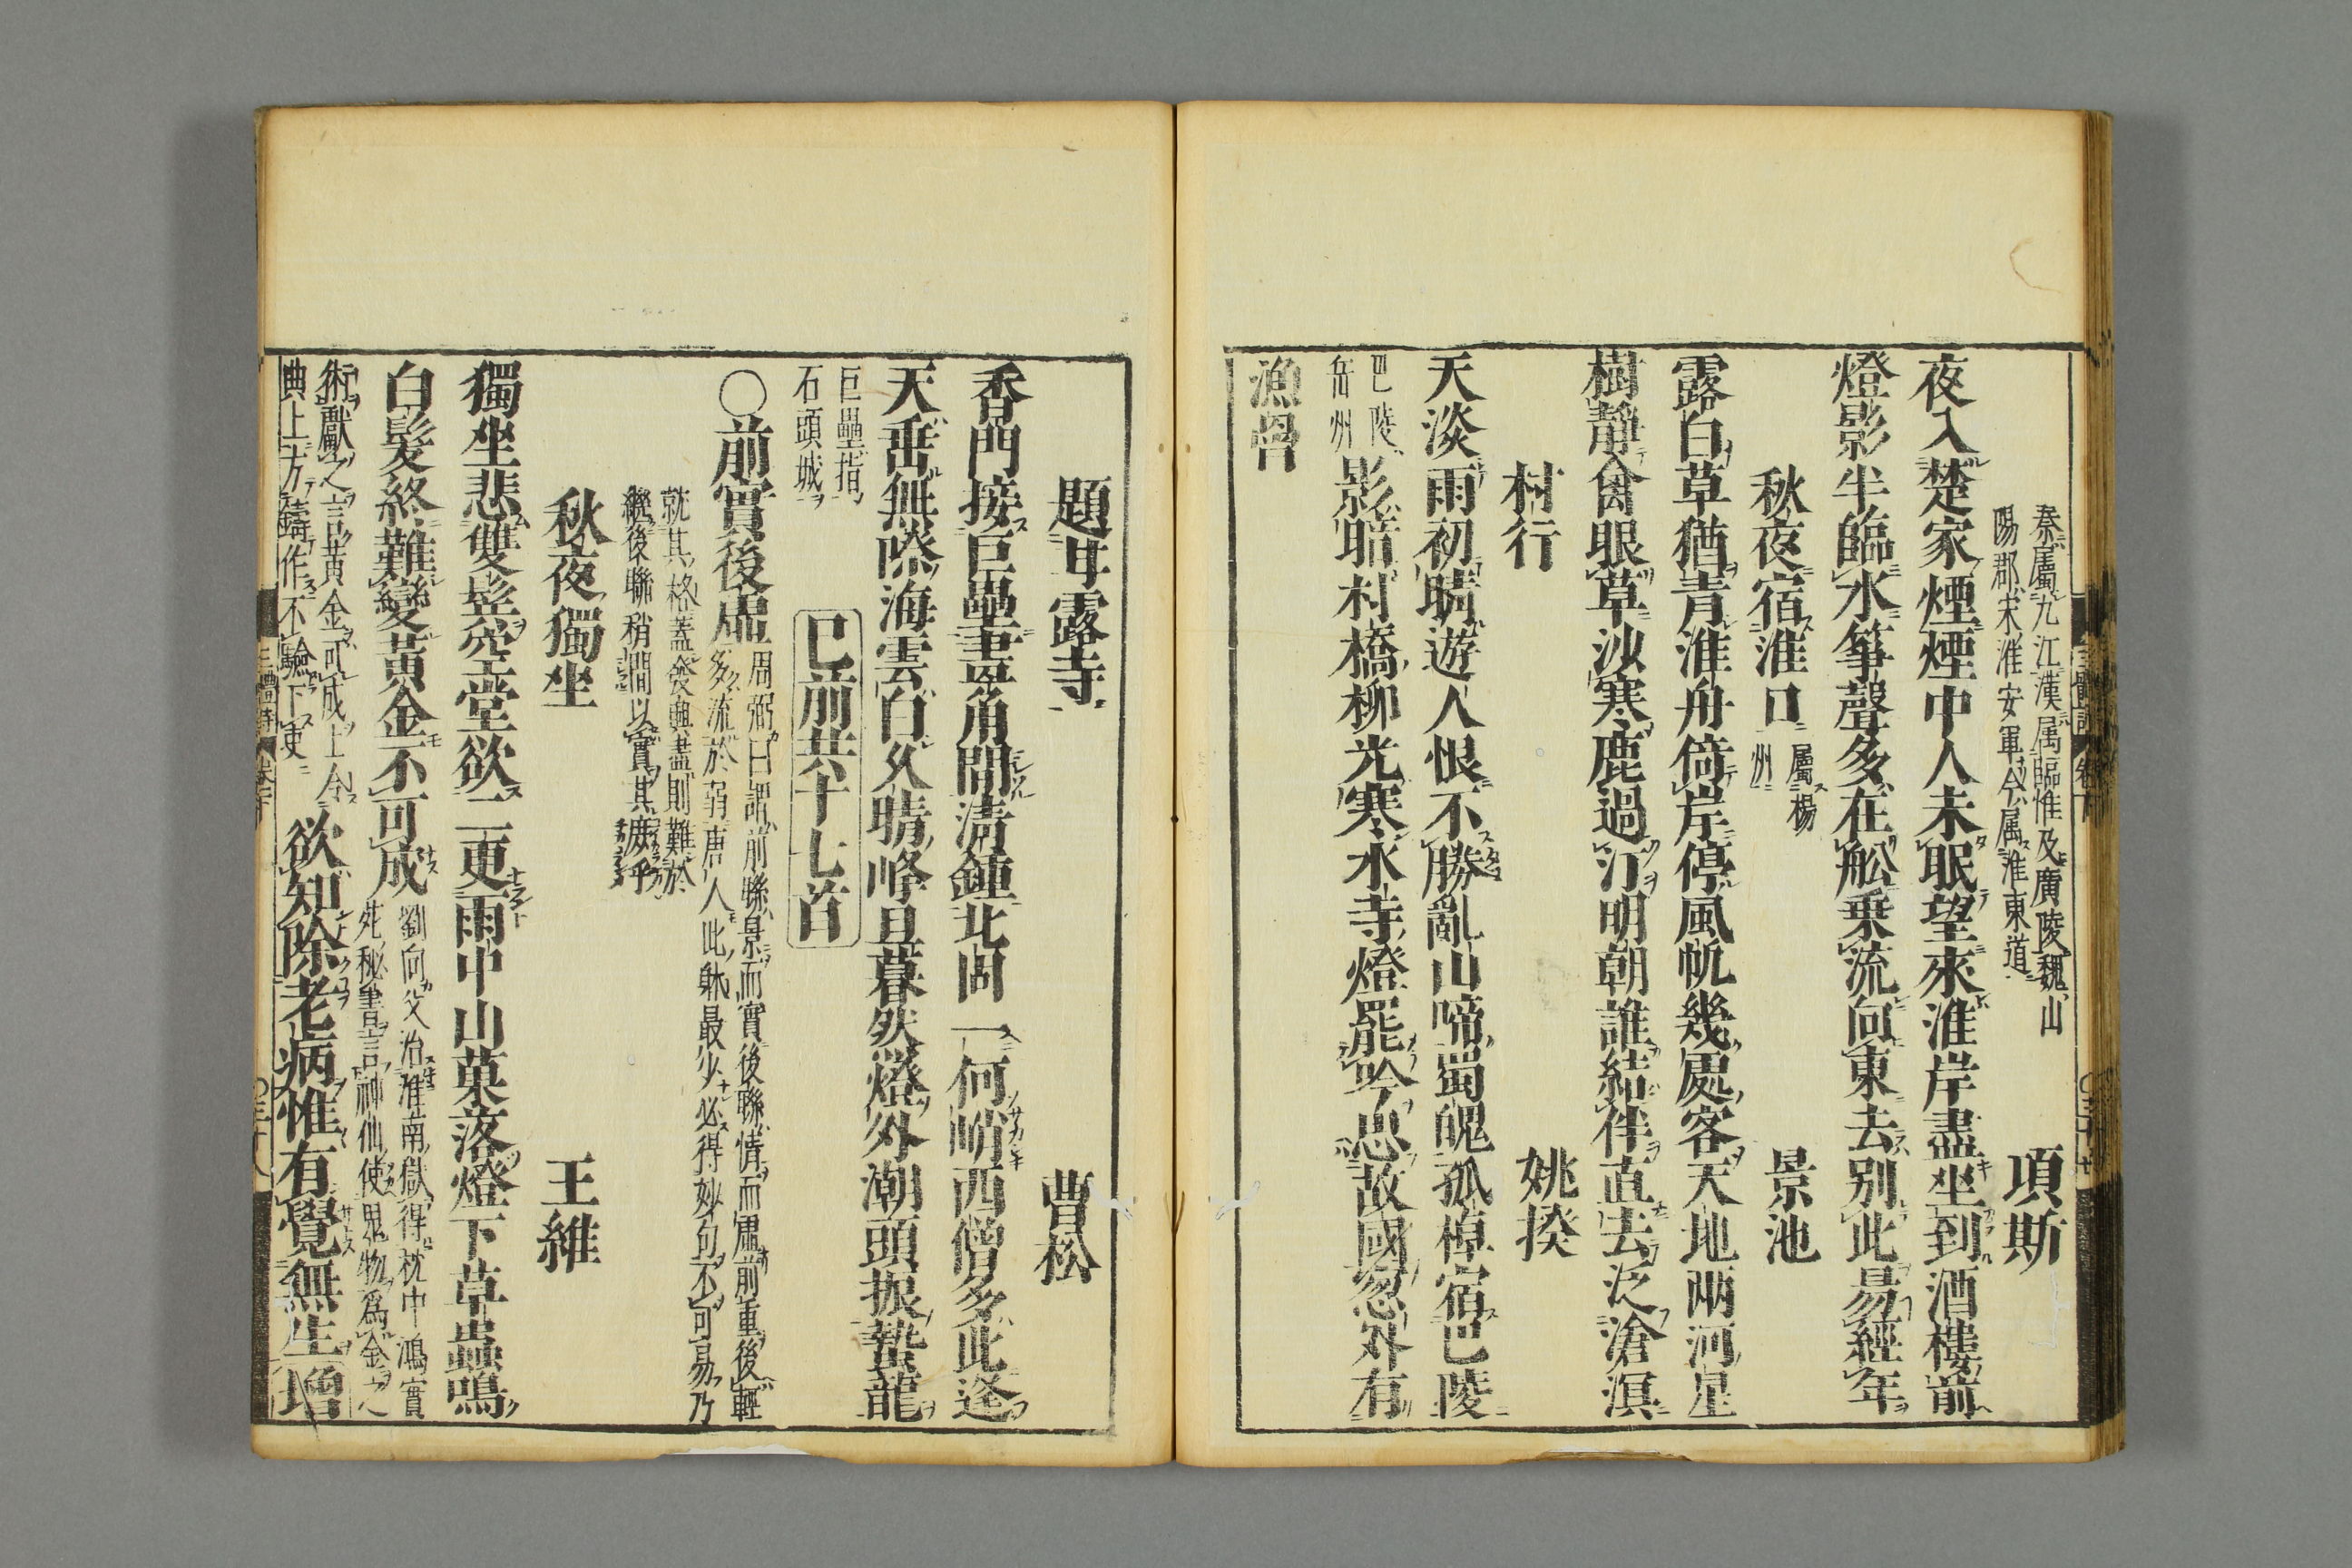 秦屬九江漢属臨惟及廣陵魏山
陽郡宋淮安軍今属淮東道
項斯
夜入楚家煙煙中人未眠望來淮岸盡坐到酒樓前
燈影半臨水筝聲多在舩乗流向東去别此易經年
秋夜宿淮口
屬楊
州
景池
露白草猶青淮舟倚岸停風帆幾處客天地兩河星
樹静禽眠草沙寒鹿過汀明朝誰結伴直去泛滄溟
村行
姚揆
天淡雨初晴遊人恨不勝亂山啼蜀魄孤棹宿巴陵
巴陵
岳州
影暗村橋柳光寒水寺燈罷吟思故國忽外有
漁罾
題甘露寺
曹松
香門接巨壘畫角間清鍾北固一何峭西僧多此逢
天垂無際海雲白久晴峰旦暮然燈外潮頭振蟄龍
巨壘指
石頭城
巳前共十七首
〇前實後虚
周弼曰謂前聯景而實後聯情而虚前重後輕
多流於弱唐人此躰最少必得妙句不可易乃
就其格蓋發興盡則難於
繼後聯稍間以實其庶乎
秋夜獨坐
王維
獨坐悲雙鬂空堂欲二更雨中山菓落燈下草蟲鳴
白髮終難變黄金不可成
劉向父治淮南獄得枕中鴻寳
苑秘書言神仙使鬼物爲金之
術獻之言黄金可成上令
典上方鑄作不驗下吏
欲知除老病惟有覺無生
増
三體詩
卷下
〇三十八